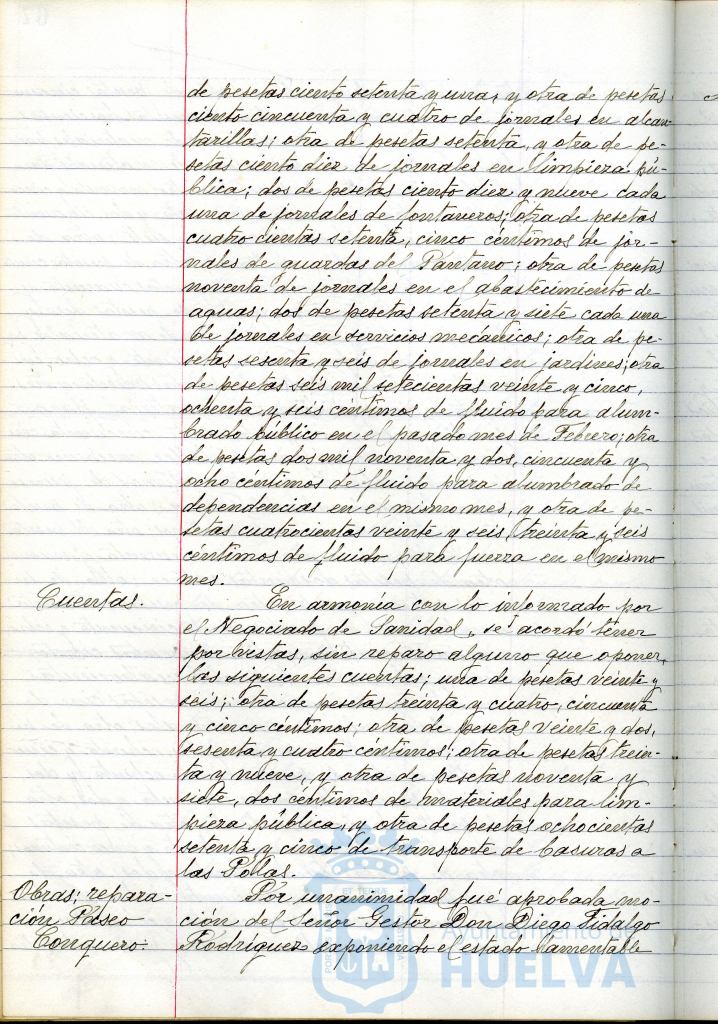 de pesetas ciento setenta y una, y otra de pesetas
ciento cincuenta y cuatro de jornales en alcan-
tarillas; otra de pesetas setenta, y otra de pe-
setas ciento diez de jornales en limpieza pú-
blica; dos de pesetas ciento diez y nueve cada
una de jornales de fontaneros; otra de pesetas
cuatrocientas setenta, cinco céntimos de jor-
nales de guardas del Pantano; otra de pesetas
noventa de jornales en el abastecimiento de
aguas; dos de pesetas setenta y siete cada una
de jornales en servicios mecánicos; otra de pe-
setas sesenta y seis de jornales en jardines; otra
de pesetas seis mil setecientas veinte y cinco,
ochenta y seis céntimos de fluido para alum-
brado público en el pasado mes de Febrero; otra
de pesetas dos mil noventa y dos, cincuenta y
ocho céntimos de fluido para alumbrado de
dependencias en el mismo mes, y otra de pe-
setas cuatrocientas veinte y seis, treinta y seis
céntimos de fluido para fuerza en el mismo
mes.
Cuentas. En armonía con lo informado por
el Negociado de Sanidad, se acordó tener
por vistas, sin reparo alguno que oponer,
las siguientes cuentas; una de pesetas veinte y
seis; otra de pesetas treinta y cuatro, cincuenta
y cinco céntimos; otra de pesetas veinte y dos,
sesenta y cuatro céntimos; otra de pesetas trein-
ta y nueve, y otra de pesetas noventa y
siete, dos céntimos de materiales para lim-
pieza pública, y otra de pesetas ochocientas
setenta y cinco de transporte de basuras a
las Pollas.
Obras; repara-
ción Paseo
Conquero.
Por unanimidad fué aprobada mo-
ción del Señor Gestor Don Diego Fidalgo
Rodríguez exponiendo el estado lamentable
Ayuntamiento de
HUELVA